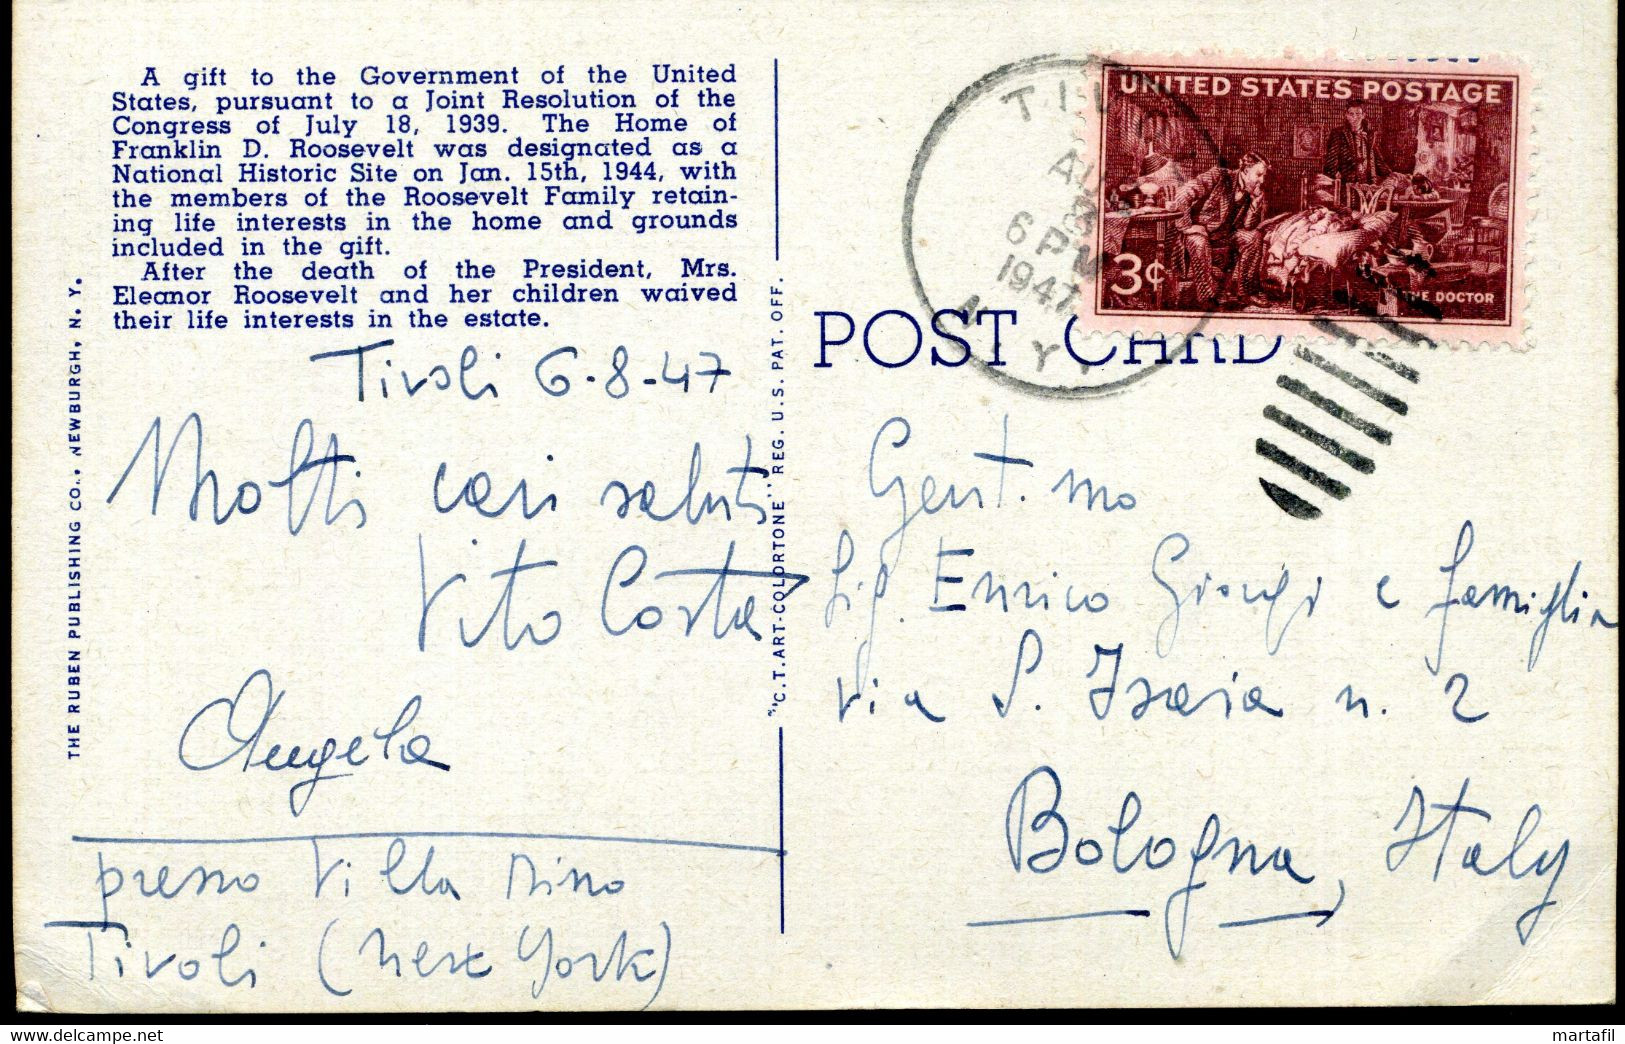 A gift to the Government of the United
States, pursuant to a Joint Resolution of the
Congress of July 18, 1939. The Home of
Franklin D. Roosevelt was designated as a
National Historic Site on Jan. 15th, 1944, with
the members of the Roosevelt Family retain-
ing life interests in the home and grounds
included in the gift.
After the death of the President, Mrs.
Eleanor Roosevelt and her children waived
their life interests in the estate.
THE RUBEN PUBLISHING CO., NEWBURGH, N. Y.
Tivoli 6-8-47
Molti cari saluti
Vito Costa
Angela
presso Villa Nino
Tivoli (New York)
"C.T. ART-COLORTONE" REG. U.S. PAT. OFF.
POST CARD
UNITED STATES POSTAGE
3¢
THE DOCTOR
TIVOLI
AUG
6 PM
1947
N. Y.
Gent.mo
Sig. Enrico Giorgi e famiglia
Via S. Isaia n. 2
Bologna, Italy
martafil